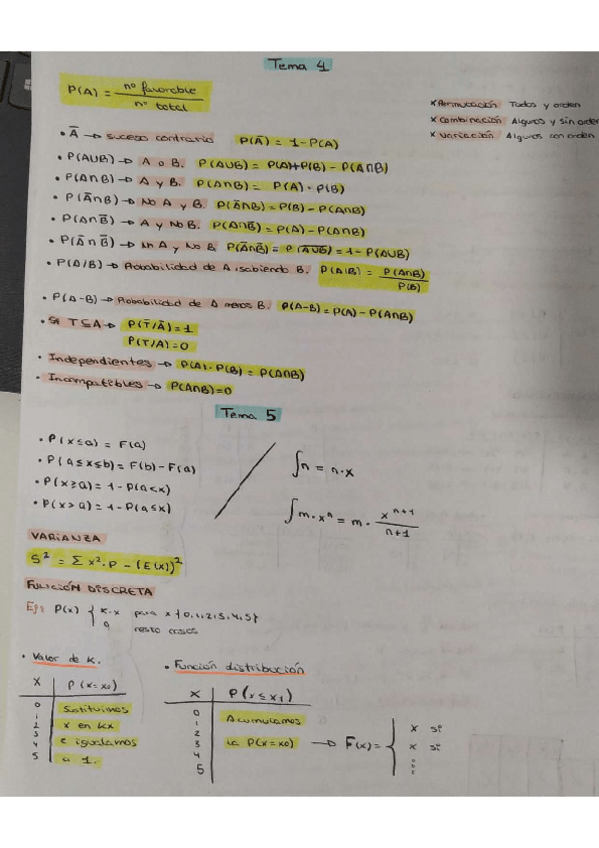 Tema 4
P(A) = nº favorable / nº total
x Permutación Todos y orden
x Combinación Algunos y sin orden
x Variación Algunos con orden
• A̅ → suceso contrario P(A̅) = 1 - P(A)
• P(A∪B) → A o B. P(A∪B) = P(A)+P(B) - P(A∩B)
• P(A∩B) → A y B. P(A∩B) = P(A) · P(B)
• P(A̅∩B) → No A y B. P(A̅∩B) = P(B) - P(A∩B)
• P(A∩B̅) → A y No B. P(A∩B̅) = P(A) - P(A∩B)
• P(A̅∩B̅) → Nn A y No B. P(A̅∩B̅) = P(A̅∪̅B̅) = 1 - P(A∪B)
• P(A/B) → Probabilidad de A sabiendo B. P(A/B) = P(A∩B) / P(B)
• P(A-B) → Probabilidad de A menos B. P(A-B) = P(A) - P(A∩B)
• Si T⊆A → P(T̅/A̅) = 1
P(T/A̅) = 0
• Independientes → P(A) · P(B) = P(A∩B)
• Incompatibles → P(A∩B) = 0
Tema 5
• P(x≤a) = F(a)
• P(a≤x≤b) = F(b) - F(a)
• P(x≥a) = 1 - P(a<x)
• P(x>a) = 1 - P(a≤x)
∫n = n·x
∫m·xⁿ = m · xⁿ⁺¹ / n+1
VARIANZA
S² = Σ x²·P - (E(x))²
FUNCIÓN DISCRETA
Ej: P(x) { K·x para x {0,1,2,3,4,5}
0 resto casos
• Valor de K.
x P(x=x0)
0 Sustituimos
1
2 x en kx
3
4 e igualamos
5 a 1.
• Función distribución
x P(x≤x1)
0 Acumulamos
1
2
3 la P(x=x0) → F(x) = { x si
4 x si
5 ...